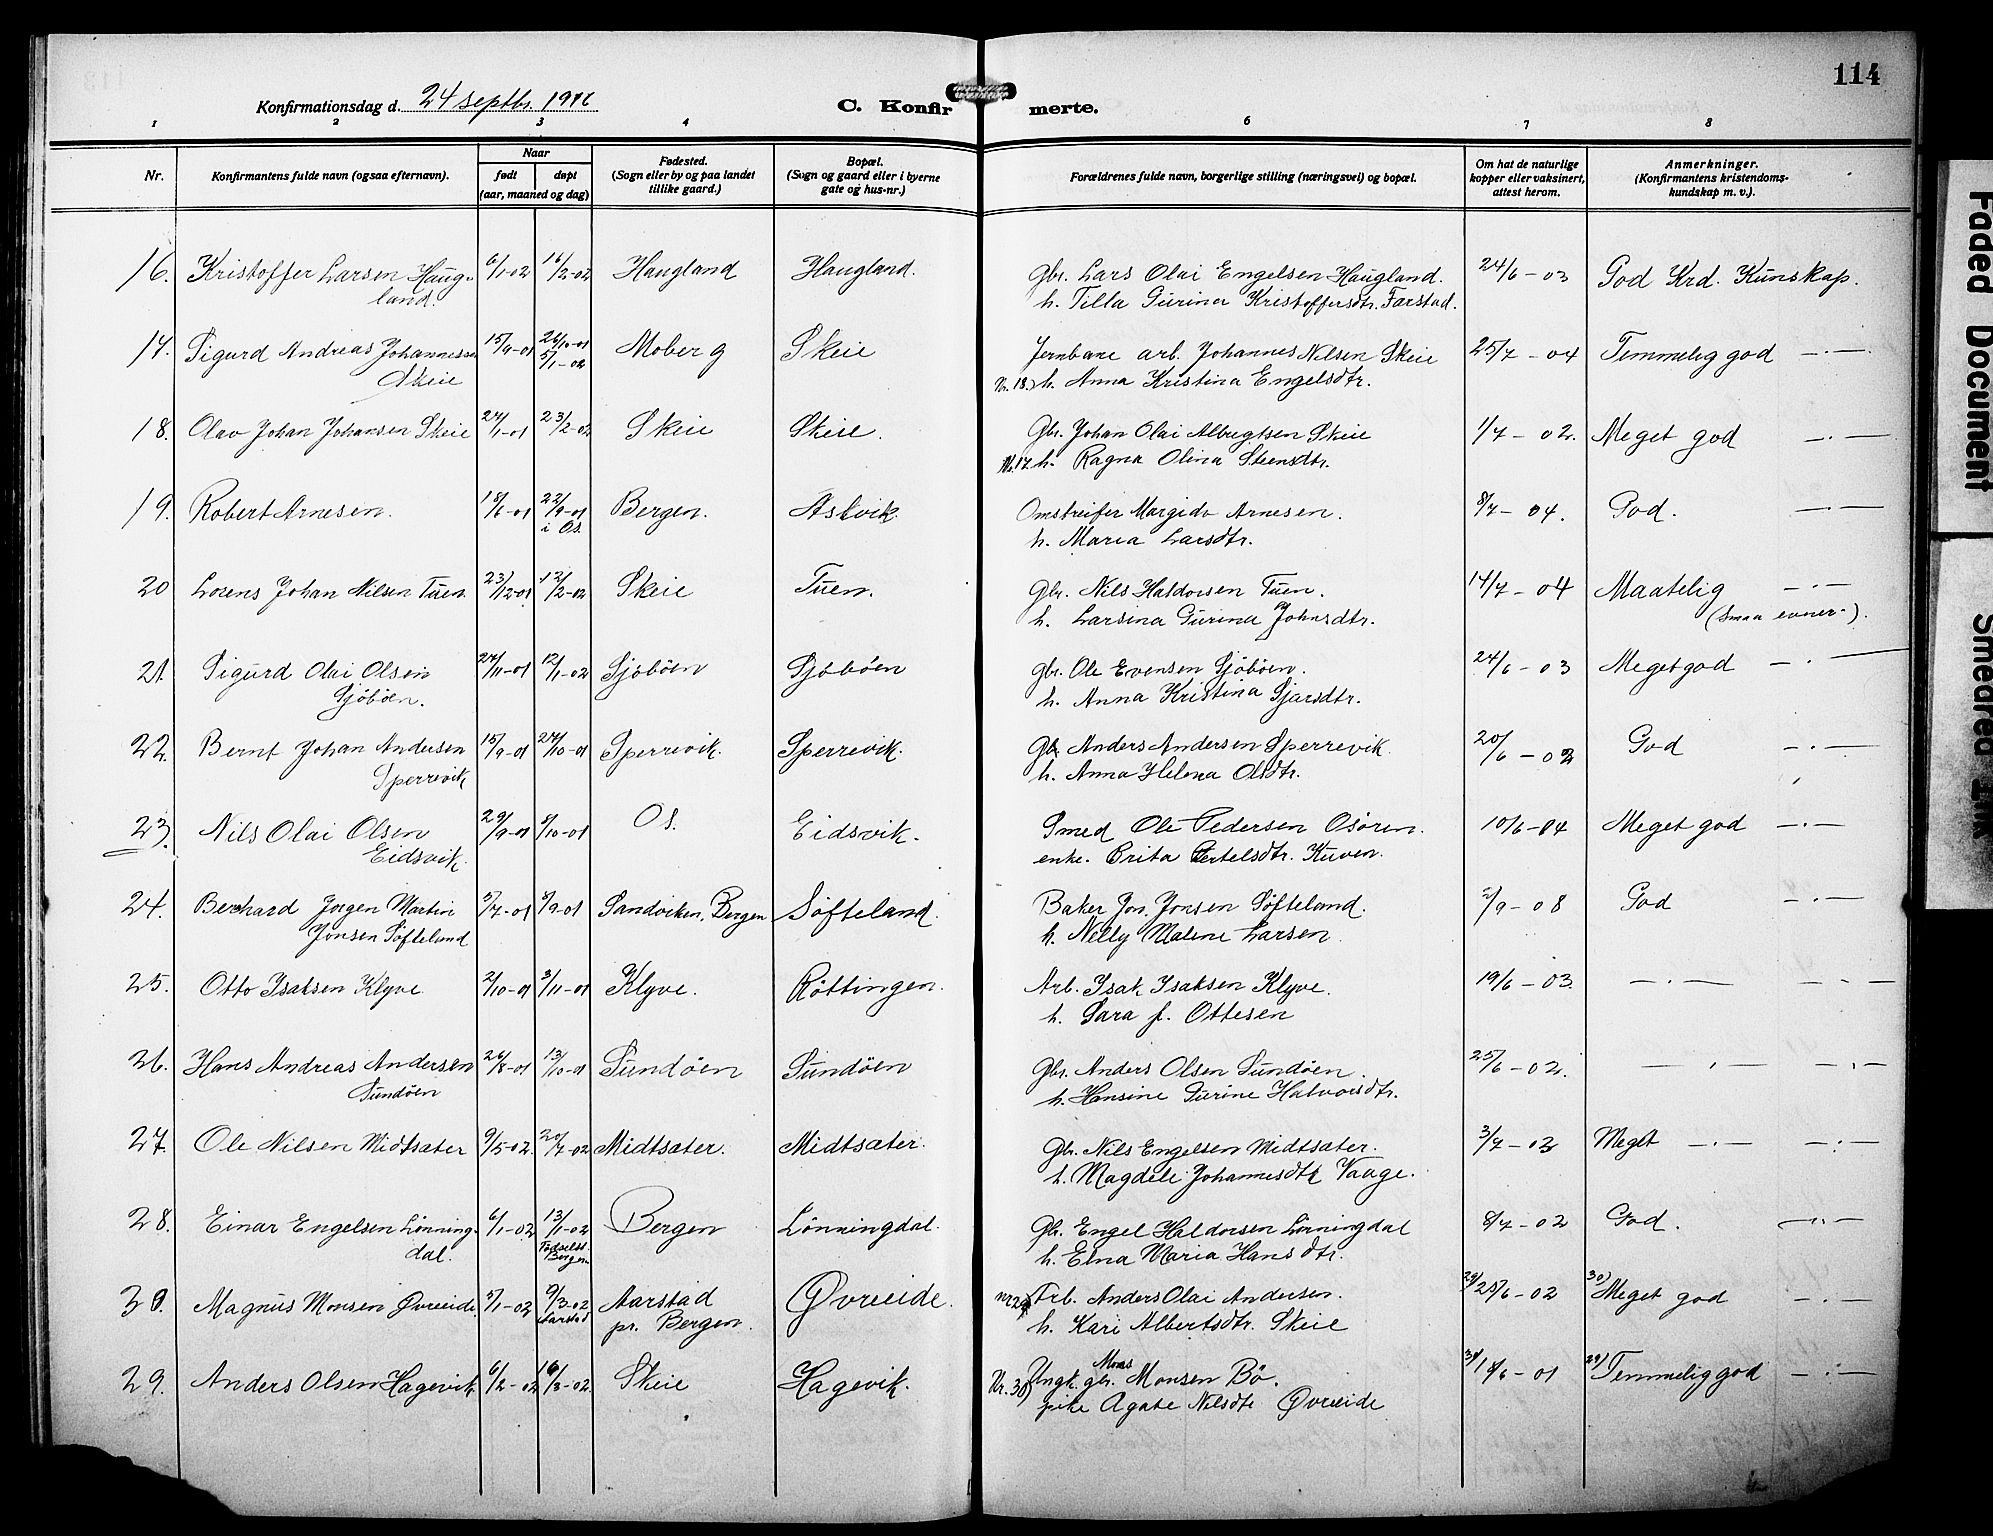 114
Konfirmationsdag d. 24 septbr. 1916
C. Konfirmerte.
1 2 3 4 5 6 7 8
Nr.
Konfirmantens fulde navn (ogsaa efternavn).
Naar
født døpt
(aar, maaned og dag)
Fødested.
(Sogn eller by og paa landet
tillike gaard.)
Bopæl.
(Sogn og gaard eller i byerne
gate og hus-nr.)
Forældrenes fulde navn, borgerlige stilling (næringsvei) og bopæl.
Om hat de naturlige
kopper eller vaksinert,
attest herom.
Anmerkninger.
(Konfirmantens kristendoms-
kundskap m. v.).
16. Kristoffer Larsen Haug- 6/1-02 16/2-02 Haugland Haugland. Gbr. Lars Olai Engelsen Haugland. 24/6-03 God Krd. Kunskap.
land. h. Tilla Gurina Kristoffersdtr. Færstad.
17. Sigurd Andreas Johannessen 15/9-01 26/10-01 Moberg Skeie Jernbane arb. Johannes Nilsen Skeie 25/7-04 Temmelig god -.-
Skeie 5/1-02 Nr. 18.) h. Anna Kristina Engelsdtr.
18. Olav Johan Johansen Skeie 24/1-01 23/2-02 Skeie Skeie. Gbr. Johan Olai Albregtsen Skeie 1/7-02. Meget god -.-
Nr. 17 h. Ragna Olina Steensdtr.
19. Robert Arnesen. 18/6-01 22/9-01 Bergen. Askvik. Omstreifer Margido Arnesen. 8/7-04. God. -.-
i Os. h. Maria Larsdtr.
20 Lorens Johan Nilsen Tuen 23/12-01 12/2-02 Skeie Tuen. Gbr. Nils Haldorsen Tuen. 14/7-04 Maatelig -.-
h. Larsina Gurina Johnsdtr. (Smaa evner.-).
21. Sigurd Olai Olsen 24/11-01 12/1-02 Sjöböen Sjöböen gbr. Ole Evensen Sjöböen. 24/6-03 Meget god -.-
Sjöböen. h. Anna Kristina Sjursdtr.
22. Bernt Johan Andersen 15/9-01 27/10-01 Sperrevik. Sperrevik. Gbr Anders Andersen Sperrevik 20/6-02 God -.-
Sperrevik h. Anna Helena Olsdtr.
23. Nils Olai Olsen 29/9-01 9/10-01 Os. Eidsvik. Smed Ole Pedersen Osören. 10/6-04 Meget god -.-
Eidsvik. enke. Brita Bertelsdtr. Kuven.
24. Bernhard Jørgen Martin 5/7-01 8/9-01 Sandviken, Bergen Søfteland. Baker Jon. Jonsen Søfteland. 2/9-08 God -.-
Jonsen Søfteland h. Nelly Malene Larsen.
25. Otto Isaksen Klyve 2/10-01 3/11-01 Klyve. Röttingen. Arb. Isak Isaksen Klyve. 19/6-03. -.- -.-
h. Sara f. Ottesen
26. Hans Andreas Andersen 26/8-01 13/10-01 Sundöen Sundöen Gbr. Anders Olsen Sundöen. 25/6-02. -.- -.-
Sundöen h. Hansine Gurine Halvorsdtr.
27. Ole Nilsen Midtsæter 9/5-02. 20/7-02 Midtsæter. Midtsæter. Gbr. Nils Engelsen Midtsæter. 3/7-03 Meget -.- -.-
h. Magdeli Johannesdtr Vaage.
28. Einar Engelsen Lönning- 6/1-02 13/1-02 Bergen Lönningdal. Gbr. Engel Haldorsen Lönningdal 8/7-02 God. -"-
dal. Fødselsst. Bergen h. Elna Maria Hansdtr.
30. Magnus Monsen Øvreeide. 5/1-02 9/3-02 Aarstad Øvreeide. nr 29 Arb. Anders Olai Andersen. 29/ 25/6-02 30) Meget god -.-
Aarstad pr. Bergen. h. Kari Albertsdtr. Skeie
29. Anders Olsen Hagevik. 6/2-02 16/3-02. Skeie Hagevik. Nr. 30) Ungk. gbr. Mons Monsen Bö. 30/ 14/6-01 29) Temmelig god -.-
pike Agate Nilsdtr Øvreeide
Faded Document